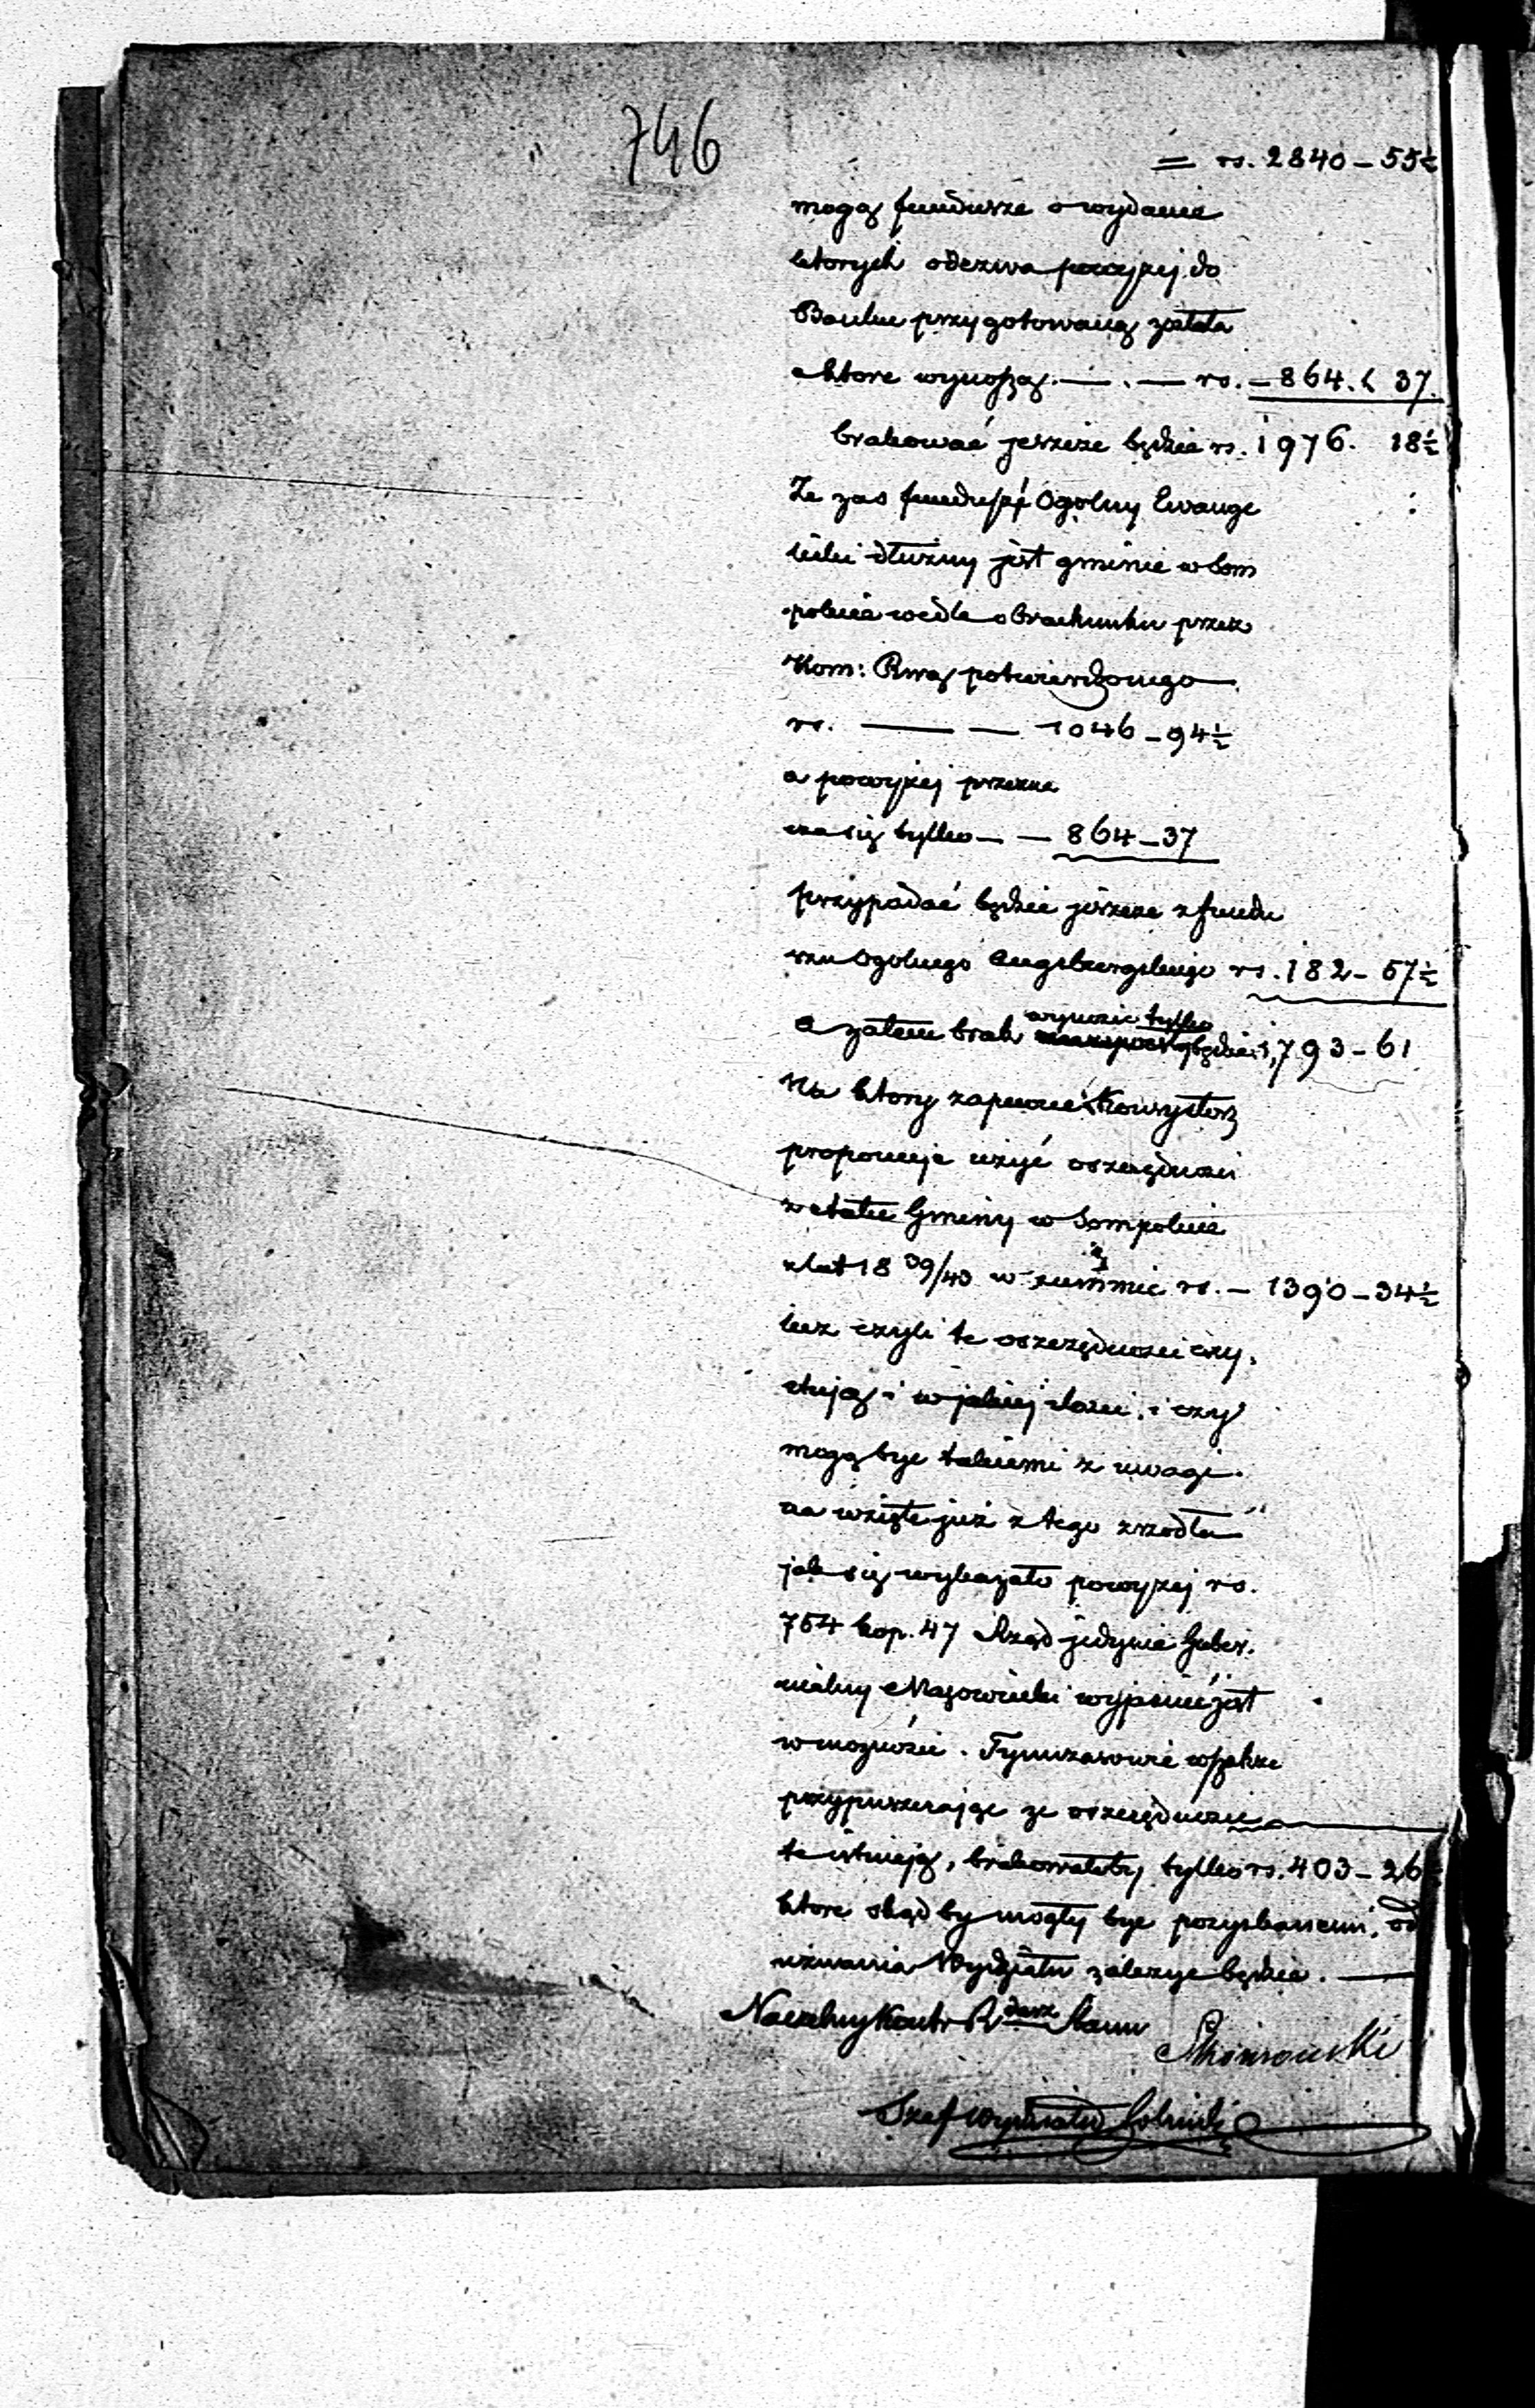 746
= rs. 2840 – 55½
mogą fundusze o wydanie
ktorych odezwa powyzej do
Banku przygotowaną została
a ktore wynoszą. — . — rs. – 864. 37.
brakować jeszcze będzie rs. 1976. 18½
Ze zas fundusz Ogolny Ewange
licki dłużny jest gminie w Som
polnie wedle obrachunku przez
Kom: Rwą potwierdzonego
rs. — — 1046 – 94½
a powyżej przezna
cza się tylko — — 864 – 37
przypadać będzie jeszcze z fundu
szu Ogolnego Augsburgskiego rs. 182 – 57½
wynosic tylko
a zatem brak będzie 1,793 – 61
Na ktory zapewne Konsystorz
proponuje użyć oszczędnosci
z etatu Gminy w Sompolnie
z lat 18 39/40 w summie rs. – 1390 – 34½
lecz czyli te oszczędnosci exy,
stują i w jakiej ilosci, i czy
mogą byc takiemi z uwagi
na wzięte już z tego zrzodła
jak się wykazało powyzej rs.
754 kop. 47 Rząd jedynie Guber.
nialny Mazowiecki wyjasnić jest
w moznosci. Tymczasowie wszakze
przypuszczając ze oszczędnosci
te istnieją, brakowałoby tylko rs. 403 – 26
ktore skąd by mogły byc pozyskanemi, od
uznania Wydziału zalezyc będzie. —
Naczelny Kontr
Szef Wydziału